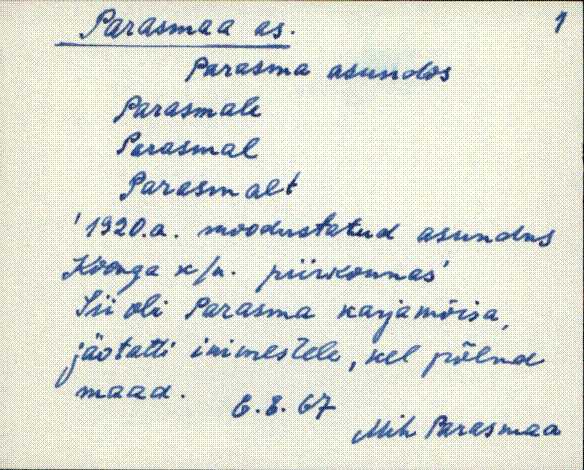 Parasmaa as. 1
Parasma asundus
Parasmale
Parasmal
Parasmalt
'1920.a. moodustatud asundus
Koonga k/n. piirkonnas'
Sii oli Parasma karjamõisa,
jäotatti inimestele, kel põlnd
maad. 6.8.67
Mih Parasmaa